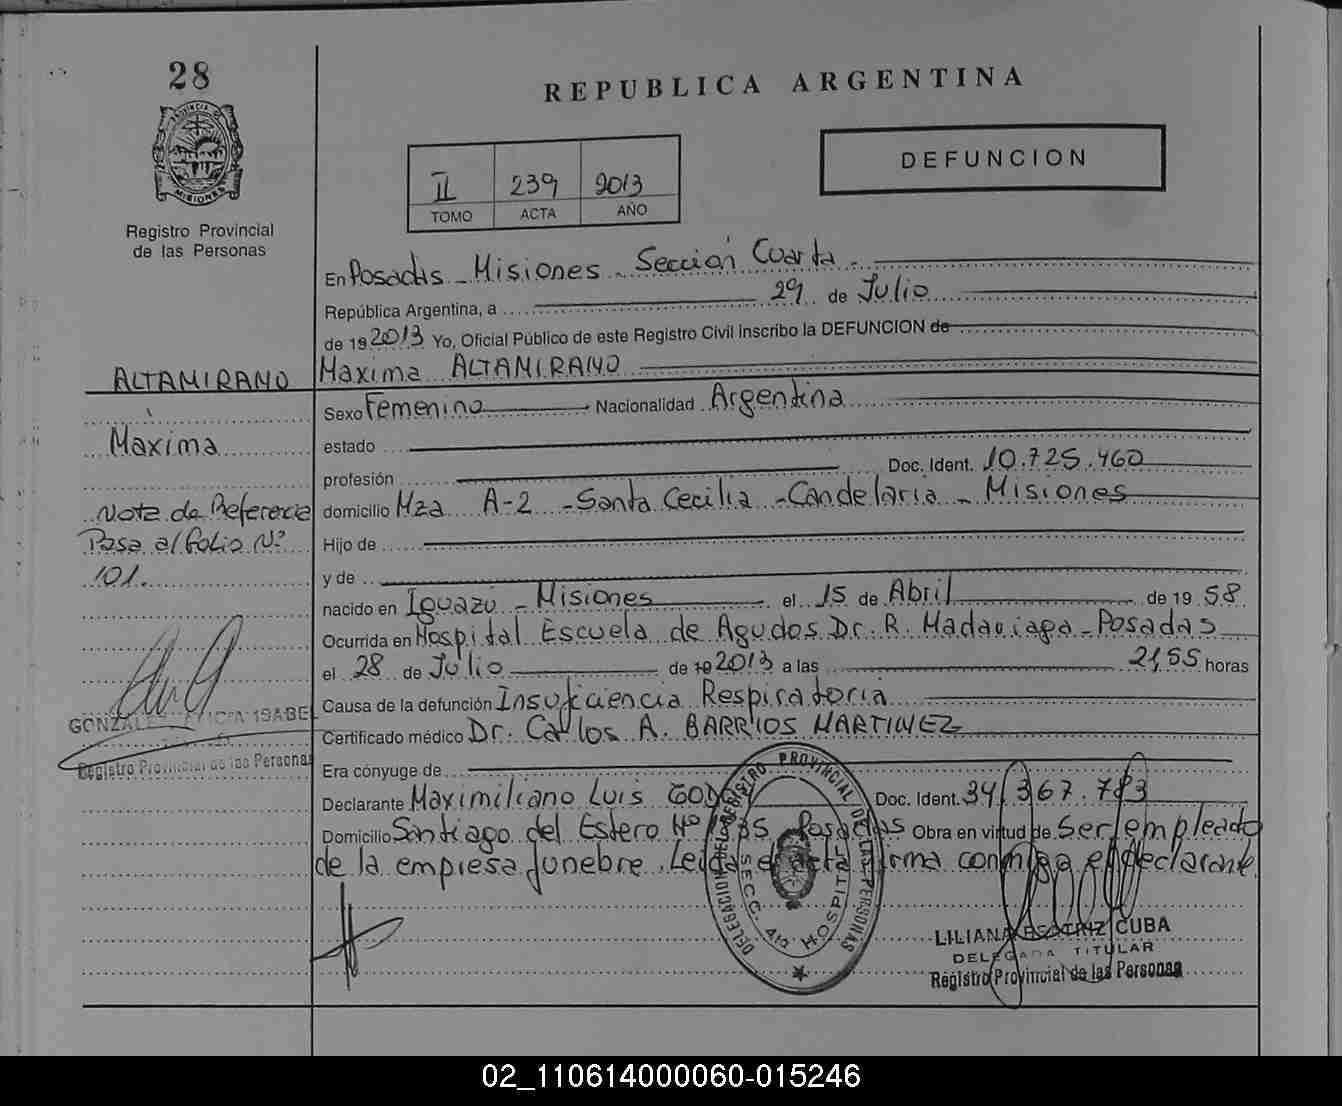 28
PROVINCIA DE
MISIONES
Registro Provincial
de las Personas
REPUBLICA ARGENTINA
II 239 2013
TOMO ACTA AÑO
DEFUNCION
En Posadas - Misiones - Sección Cuarta -
República Argentina, a 29 de Julio
de 19 2013 Yo, Oficial Público de este Registro Civil Inscribo la DEFUNCION de
Maxima ALTAMIRANO
Sexo Femenino Nacionalidad Argentina
estado
profesión Doc. Ident. 10.725.460
domicilio Mza A-2 - Santa Cecilia - Candelaria - Misiones
Hijo de
y de
nacido en Iguazú - Misiones el 15 de Abril de 19 58
Ocurrida en Hospital Escuela de Agudos Dr. R. Madariaga - Posadas
el 28 de Julio de 19 2013 a las 21,55 horas
Causa de la defunción Insuficiencia Respiratoria
Certificado médico Dr. Carlos A. BARRIOS MARTINEZ
Era cónyuge de
Declarante Maximiliano Luis Doc. Ident. 34.367.783
Domicilio Santiago del Estero Nº Posadas Obra en virtud de Ser empleado
de la empresa funebre. Leida el acta firma conmigo el declarante.
ALTAMIRANO
Maxima
Nota de Referencia
Pasa al folio Nº
101.
GONZALEZ ALICIA ISABEL
Registro Provincial de las Personas
DELEGACION DEL REGISTRO PROVINCIAL DE LAS PERSONAS
SECC. 4ta HOSPITAL
LILIANA BEATRIZ CUBA
DELEGADA TITULAR
Registro Provincial de las Personas
02_110614000060-015246